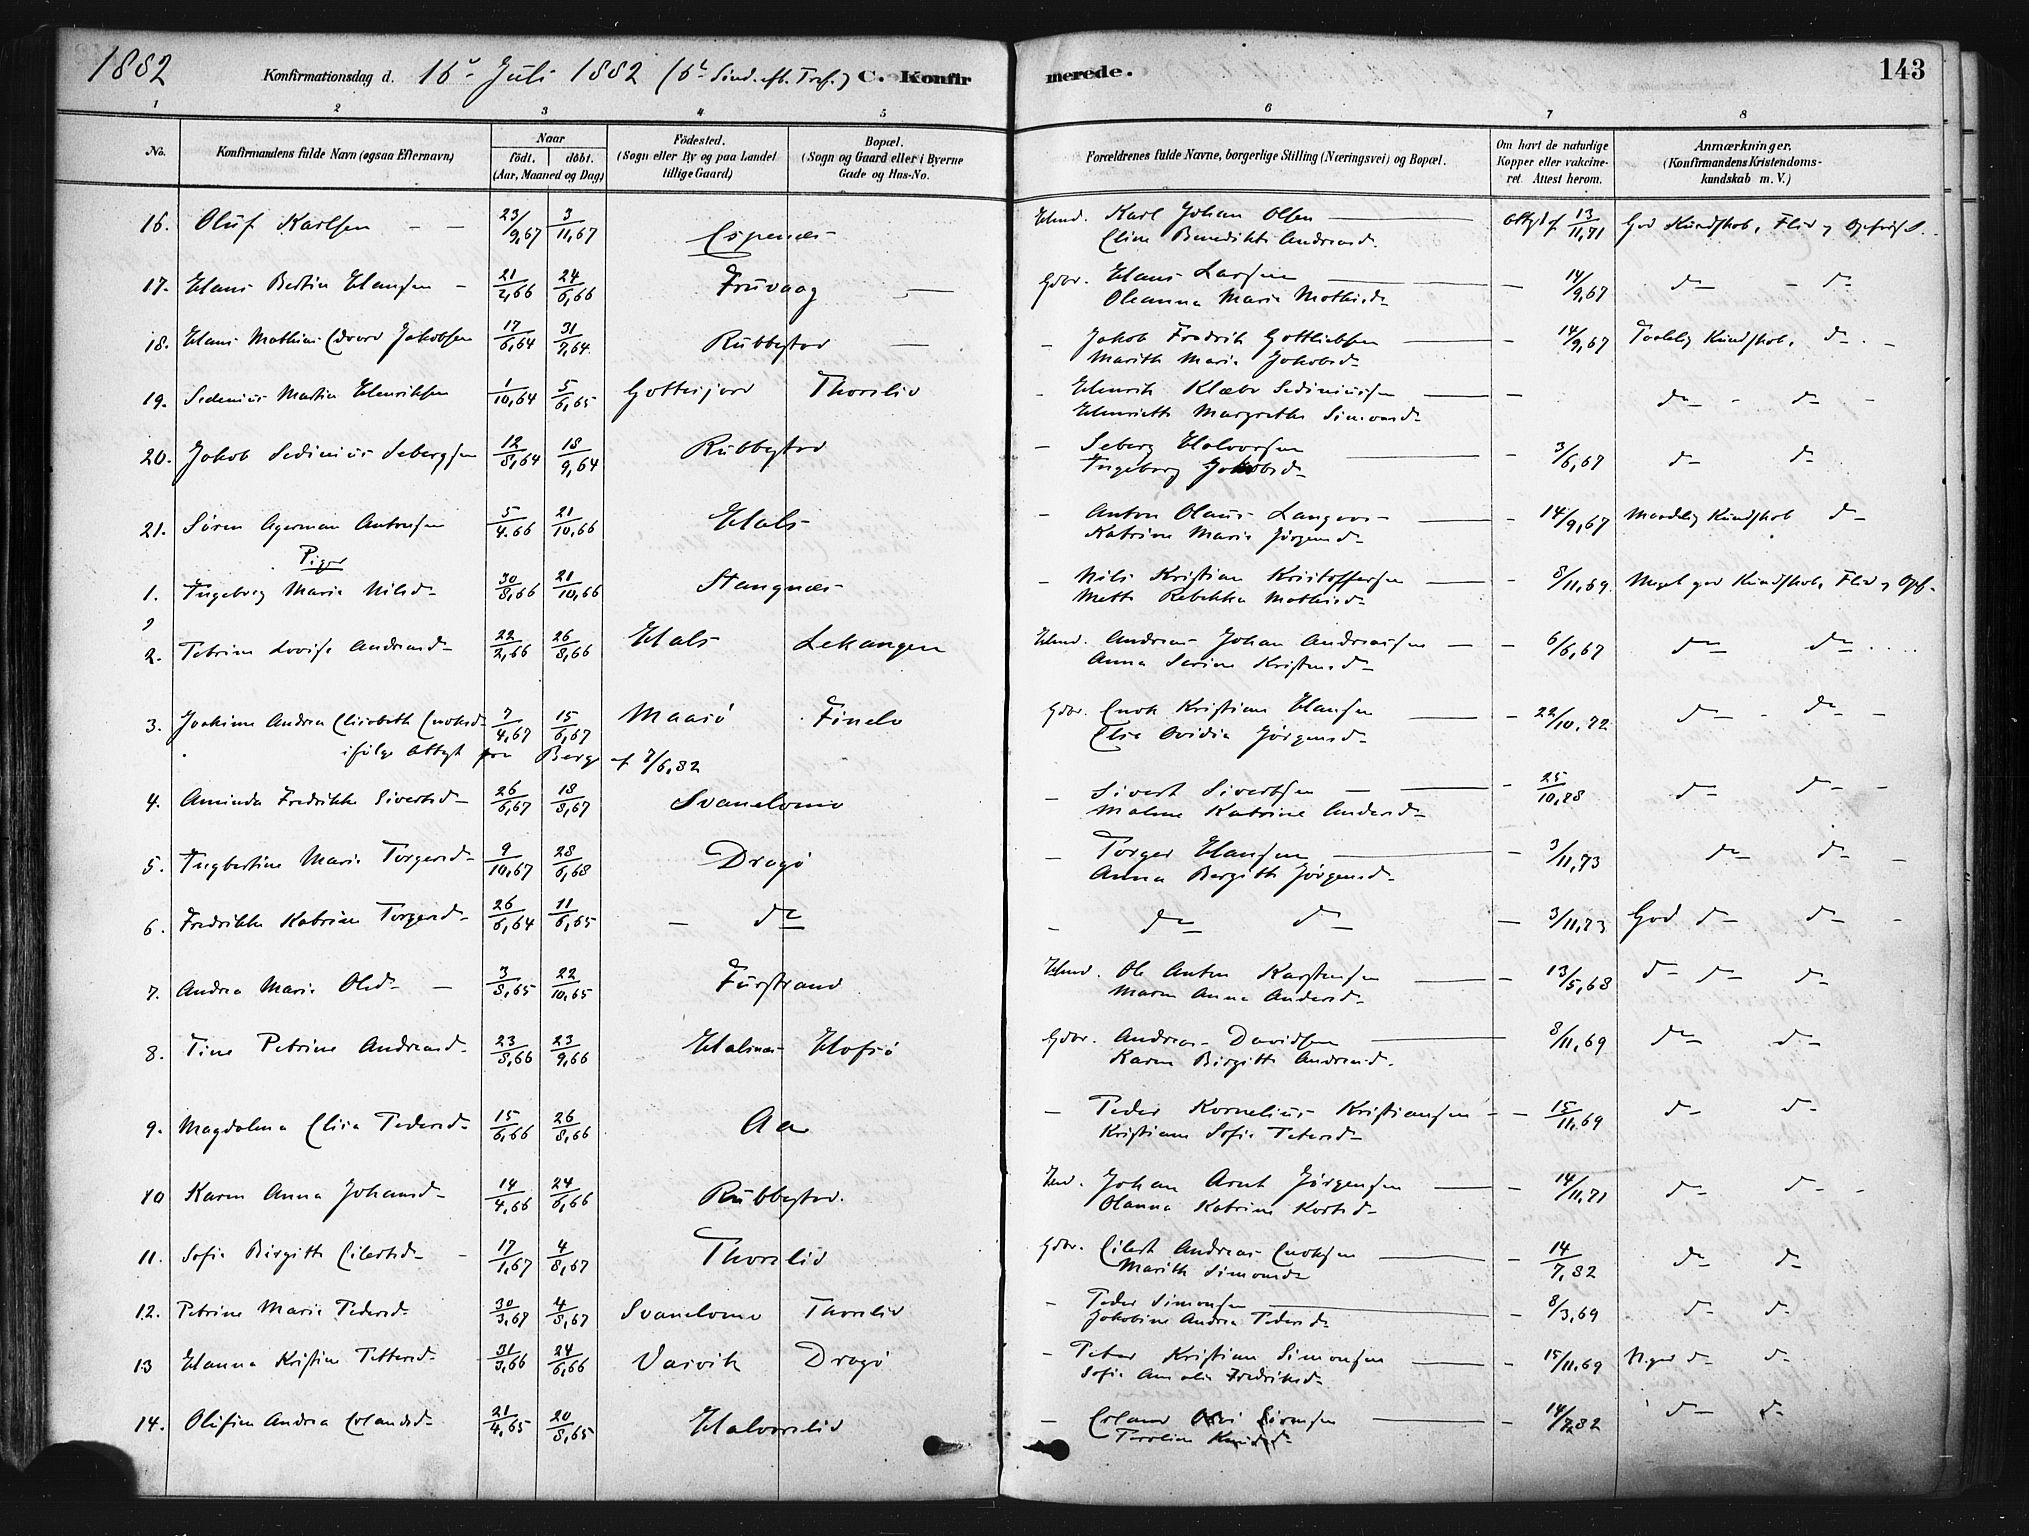 1882 Konfirmationsdag d. 16de Juli 1882 (6te Sønd. eft. Tref.) C. Konfirmerede. 143
1 2 3 4 5 6 7 8
No. Konfirmandens fulde Navn (ogsaa Efternavn) Naar Födested. Bopæl. Forældrenes fulde Navne, borgerlige Stilling (Næringsvei) og Bopæl. Om havt de naturlige Anmærkninger.
födt. döbt. (Sogn eller By og paa Landet (Sogn og Gaard eller i Byerne Kopper eller vakcine- (Konfirmandens Kristendoms-
(Aar, Maaned og Dag) tillige Gaard) Gade og Hus-No. ret. Attest herom. kundskab m. V.)
16. Oluf Karlsen - - 23/9,67 3/11,67 Espenæs Hmd. Karl Johan Olsen — Attest af 13/11,71 God Kundskab, Flid og Opførsel.
Eline Benedikte Andreasd.
17. Hans Bertin Hansen - 21/2,66 24/6,66 Fruvaag — Gdbr. Hans Larsen — - 14/9,67 do - do
Oleanna Marie Mathisd.
18. Hans Mathias Edvard Jakobsen 17/6,64 31/7,64 Rubbestad — - Jakob Fredrik Gottliebsen — - 14/9,67 Taalelig Kundskab, do -
Marith Maria Jakobsd.
19. Sedenius Martin Henriksen 1/10,64 5/6,65 Gottesjord Thorslid - Henrik Klæbo Sediniussen — - do - do -
Henriette Margrethe Simonsd.
20. Jakob Sedinius Sebergsen 12/8,64 18/9,64 Rubbestad - Seberg Halvorsen — - 3/6,67 do do
Ingeborg Jakobsd.
21. Søren Agerman Antonsen 5/4,66 21/10,66 Hals - Anton Olaus Langaas — - 14/9,67 Maadelig Kundskab do
Katrine Marie Jørgensd.
Piger
1. Ingeborg Marie Nilsd. 30/8,66 21/10,66 Stangnæs - Nils Kristian Kristoffersen — - 8/11,69 Meget god Kundskab, Flid og Opf.
Mette Rebekka Mathisd.
2. Petrine Lovise Andreasd. 22/2,66 26/8,66 Hals Lekangen Hmd. Andreas Johan Andreassen — - 6/6,67 do do
Anna Serine Kristensd.
3. Joakime Andrea Elisabeth Enoksd. 7/4,67 15/6,67 Maasø Finelv Gdbr. Enok Kristian Hansen — - 22/10,72 do - do -
ifølge Attest fra Berg af 7/6,82 Elsa Ovidia Jørgensd.
4. Aminda Fredrikke Sivertsd. 26/6,67 18/8,67 Svanelvmo - Sivert Sivertsen — - 25/10,88 do do -
Malene Katrine Andersd.
5. Ingbertine Marie Torgersd. 9/10,67 28/6,68 Dragø - Torger Hansen — - 3/11,73 do do -
Anna Bergitte Jørgensd.
6. Fredrikke Katrine Torgersd. 26/6,64 11/6,65 - do - do do - 3/11,73 God do do -
7. Andrea Marie Olsd. - 3/8,65 22/10,65 Furstrand Hmd. Ole Anton Karstensen — - 13/5,68 do do do
Maren Anna Andersd.
8. Tine Petrine Andreasd. 23/8,66 23/9,66 Halsnæs Hofsø Gdbr. Andreas Davidsen — 8/11,69 do do
Karen Birgitte Andreasd.
9. Magdalena Elisa Pedersd. 15/6,66 26/8,66 Aa - Peder Kornelius Kristiansen - - 15/11,69 do do
Kristiane Sofie Petersd.
10 Karen Anna Johansd. 14/4,66 24/6,66 Rubbestad. Hmd. Johan Arnt Jørgensen — - 14/11,71 do do -
Olanna Katrine Kortsd.
11. Sofie Birgitte Eilertsd. - 17/1,67 4/8,67 Thorslid Gdbr. Eilert Andreas Enoksen — - 14/7,82 do do
Marith Simonsd.
12. Petrine Marie Pedersd. 30/3,67 4/8,67 Svanelvmo Thorslid - Peder Simonsen — - 8/3,69 do do
Jakobine Andrea Pedersd.
13 Hanna Kristine Pettersd. 31/3,66 24/6,66 Vasvik Dragø - Peter Kristian Simonsen — - 15/11,69 Meget do do
Sofie Amalie Fredriksd.
14. Olufine Andrea Erlandsd. 21/4,65 20/8,65 Halvorslid - Erland — - 14/7,82 do do